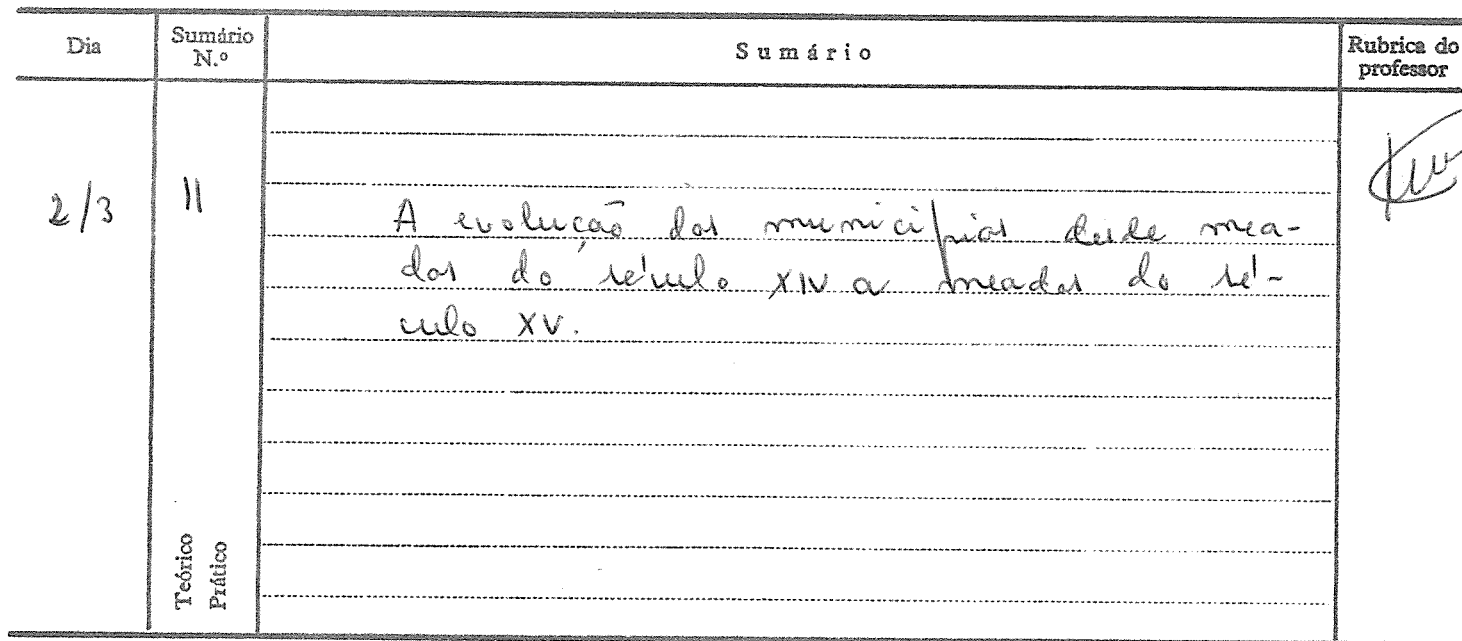 Dia
Sumário
N.º
Sumário
Rubrica do
professor
2/3
11
A evolução dos municípios desde mea-
dos do século XIV a meados do sé-
culo XV.
Teórico
Prático